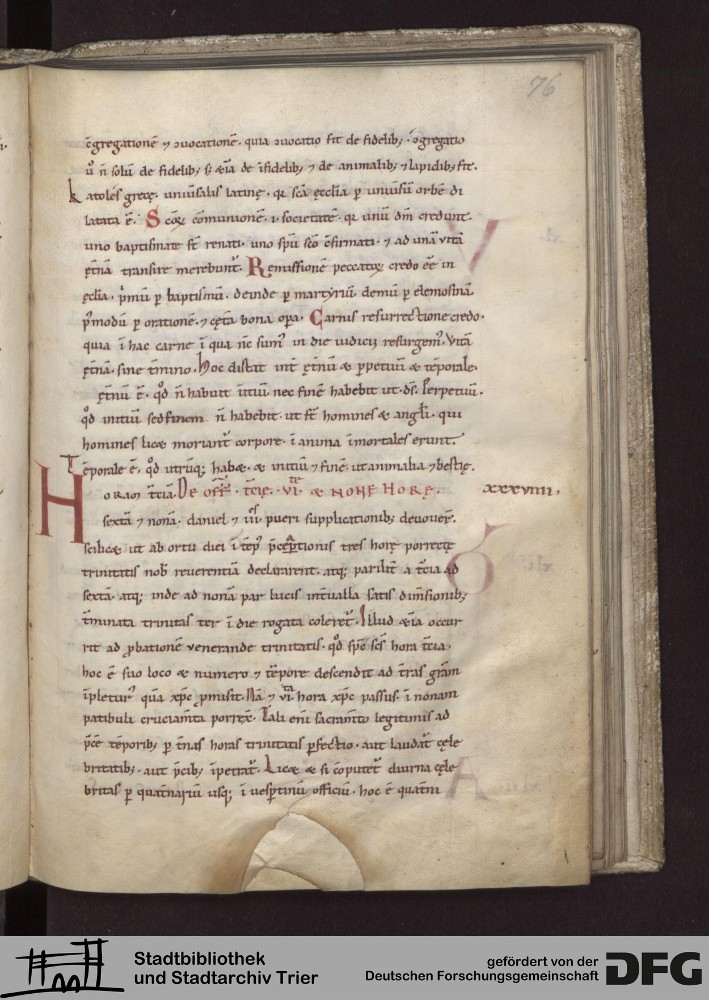 76
c̄gregationē ⁊ ɔuocationē. quia ɔuocatio fit de fidelib; ɔgregatio
ū n̄ solū de fidelib; s; &iā de īfidelib; ⁊ de animalib; ⁊ lapidib; fit.
katoles grece. uniuersalis latine. qr̄ scā ęcclia p̄ uniuersū orbē di
latata ē. Scōꝝ cōmunionē .i. societatē. qr̄ unū dn̄m credunt.
uno baptismate st̄ renati. uno sp̄u sc̄o cfirmati. ⁊ ad unā uitā
ęt̄nā transire merebunt̄. Remissionē peccatoꝝ credo eē in
ęclia. p̄mū p̄ baptismū. deinde p̄ martyriū. demū p̄ elemosinā
p̄modū p̄ orationē. ⁊ cęt̄a bona op̄a. Carnis resurrectionē credo.
quia ī hac carne ī qua nc̄ sum᷒ in die iudicii resurgem᷒. Vitā
ęt̄nā. sine t̄mino. Hoc distat int̄ ęt̄nū & p̄petuū & tēporale.
ęt̄nū ē. qd̄ n̄ habuit initiū. nec finē habebit. ut ds̄. Perpetuū.
qd̄ initiū sed finem n̄ habebit. ut st̄ homines & angli. qui
homines lic& moriant̄ corpore. ī anima īmortales erunt.
Tēporale ē. qd̄ utrūq; hab&. & initiū ⁊ finē. ut animalia ⁊ bestię.
De off̄. t̄cię. vi. & none horę. xxxviiii.
Horam t̄ciā.
sextā ⁊ nonā. daniel ⁊ iii pueri supplicationib; deuouer̄.
scilic& ut ab ortu diei ī tēp᷒ p̄cationis tres horę porrectę
trinitatis nob̄ reuerentiā declararent. atq; parilit̄ a t̄cia ad
sextā. atq; inde ad nonā par lucis int̄ualla satis dim̄sionib;
t̄minata trinitas ter ī die rogata coleret̄. Illud &iā occur
rit ad p̄bationē uenerande trinitatis. qd̄ sp̄c sc̄s hora t̄cia.
hoc ē suo loco & numero ⁊ tēpore descendit ad t̄ras gr̄am
īplet̄ur quā xp̄c p̄misit. Nā ⁊ vi hora xp̄c passus. ī nonam
patibuli cruciam̄ta porrex̄. Tali eni sacram̄to legitimis ad
p̄ce tēporib; p̄ t̄nas horas trinitatis p̄fectio. aut laudat̄ cęle
britatib; aut p̄cib; īpetrat̄. Lic& & si cōputet̄ diurna cęle
britas p̄ quat̄nariū usq; ī uesp̄tinū officiū. hoc ē quat̄ni
Stadtbibliothek
und Stadtarchiv Trier
gefördert von der
Deutschen Forschungsgemeinschaft
DFG